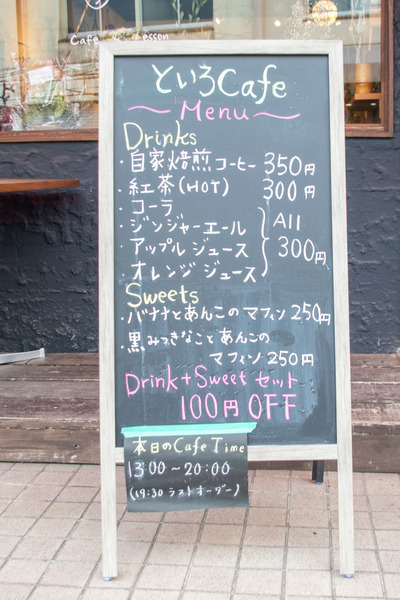 Cafe & Lesson
といろCafe
～Menu～
Drinks
・自家焙煎コーヒー 350円
・紅茶(HOT) 300円
・コーラ
・ジンジャーエール
・アップルジュース
・オレンジジュース
All
300円
Sweets
・バナナとあんこのマフィン 250円
・黒みつきなことあんこの
マフィン 250円
Drink+Sweetセット
100円OFF
本日のCafe Time
13:00～20:00
(19:30 ラストオーダー)